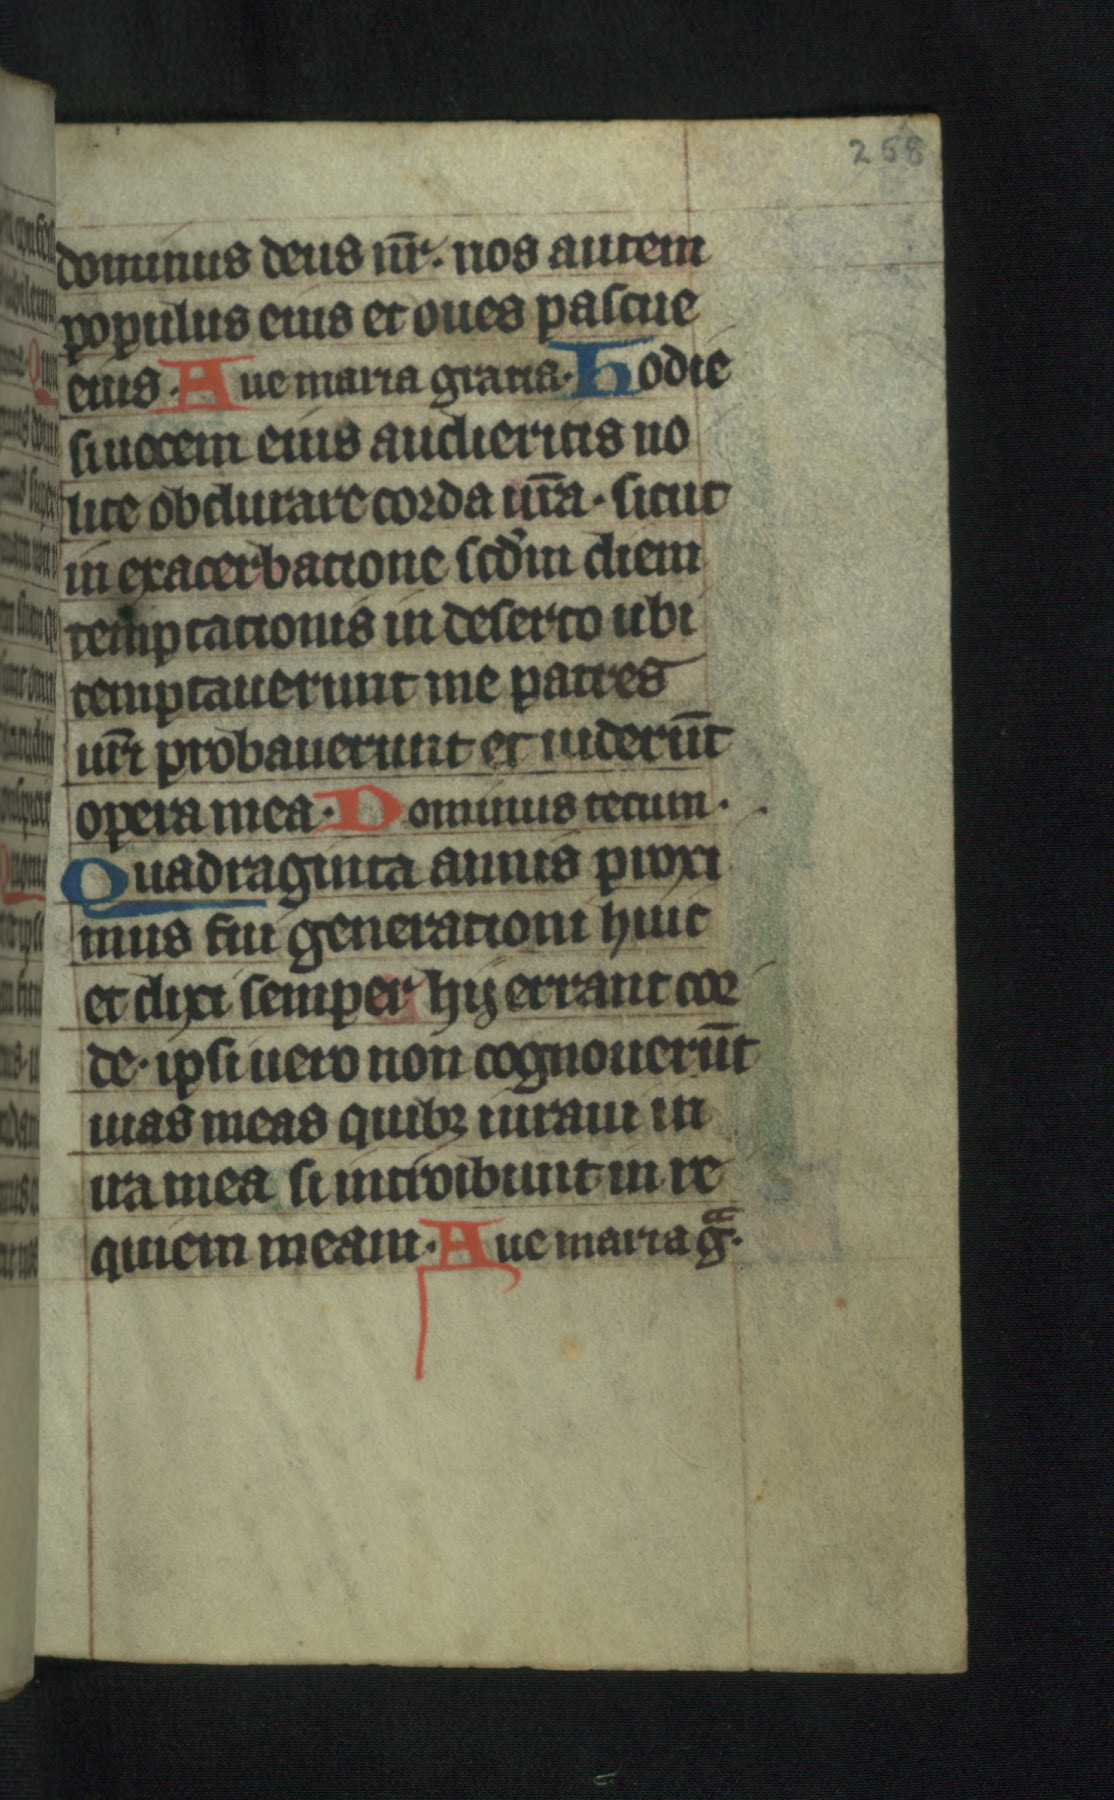 258
dominus deus nr̄. nos autem
populus eius et oues pascue
eius. Aue maria gratia. Hodie
si uocem eius audieritis no
lite obdurare corda ur̄a. sicut
in exacerbatione scd̄m diem
temptationis in deserto ubi
temptauerunt me patres
ur̄i probauerunt et uiderūt
opera mea. Dominus tecum.
Quadraginta annis proxi
mus fui generationi huic
et dixi semper hij errant cor
de. ipsi uero non cognouerūt
uias meas quibꝫ iuraui in
ira mea si introibunt in re
quiem meam. Aue maria g̃.